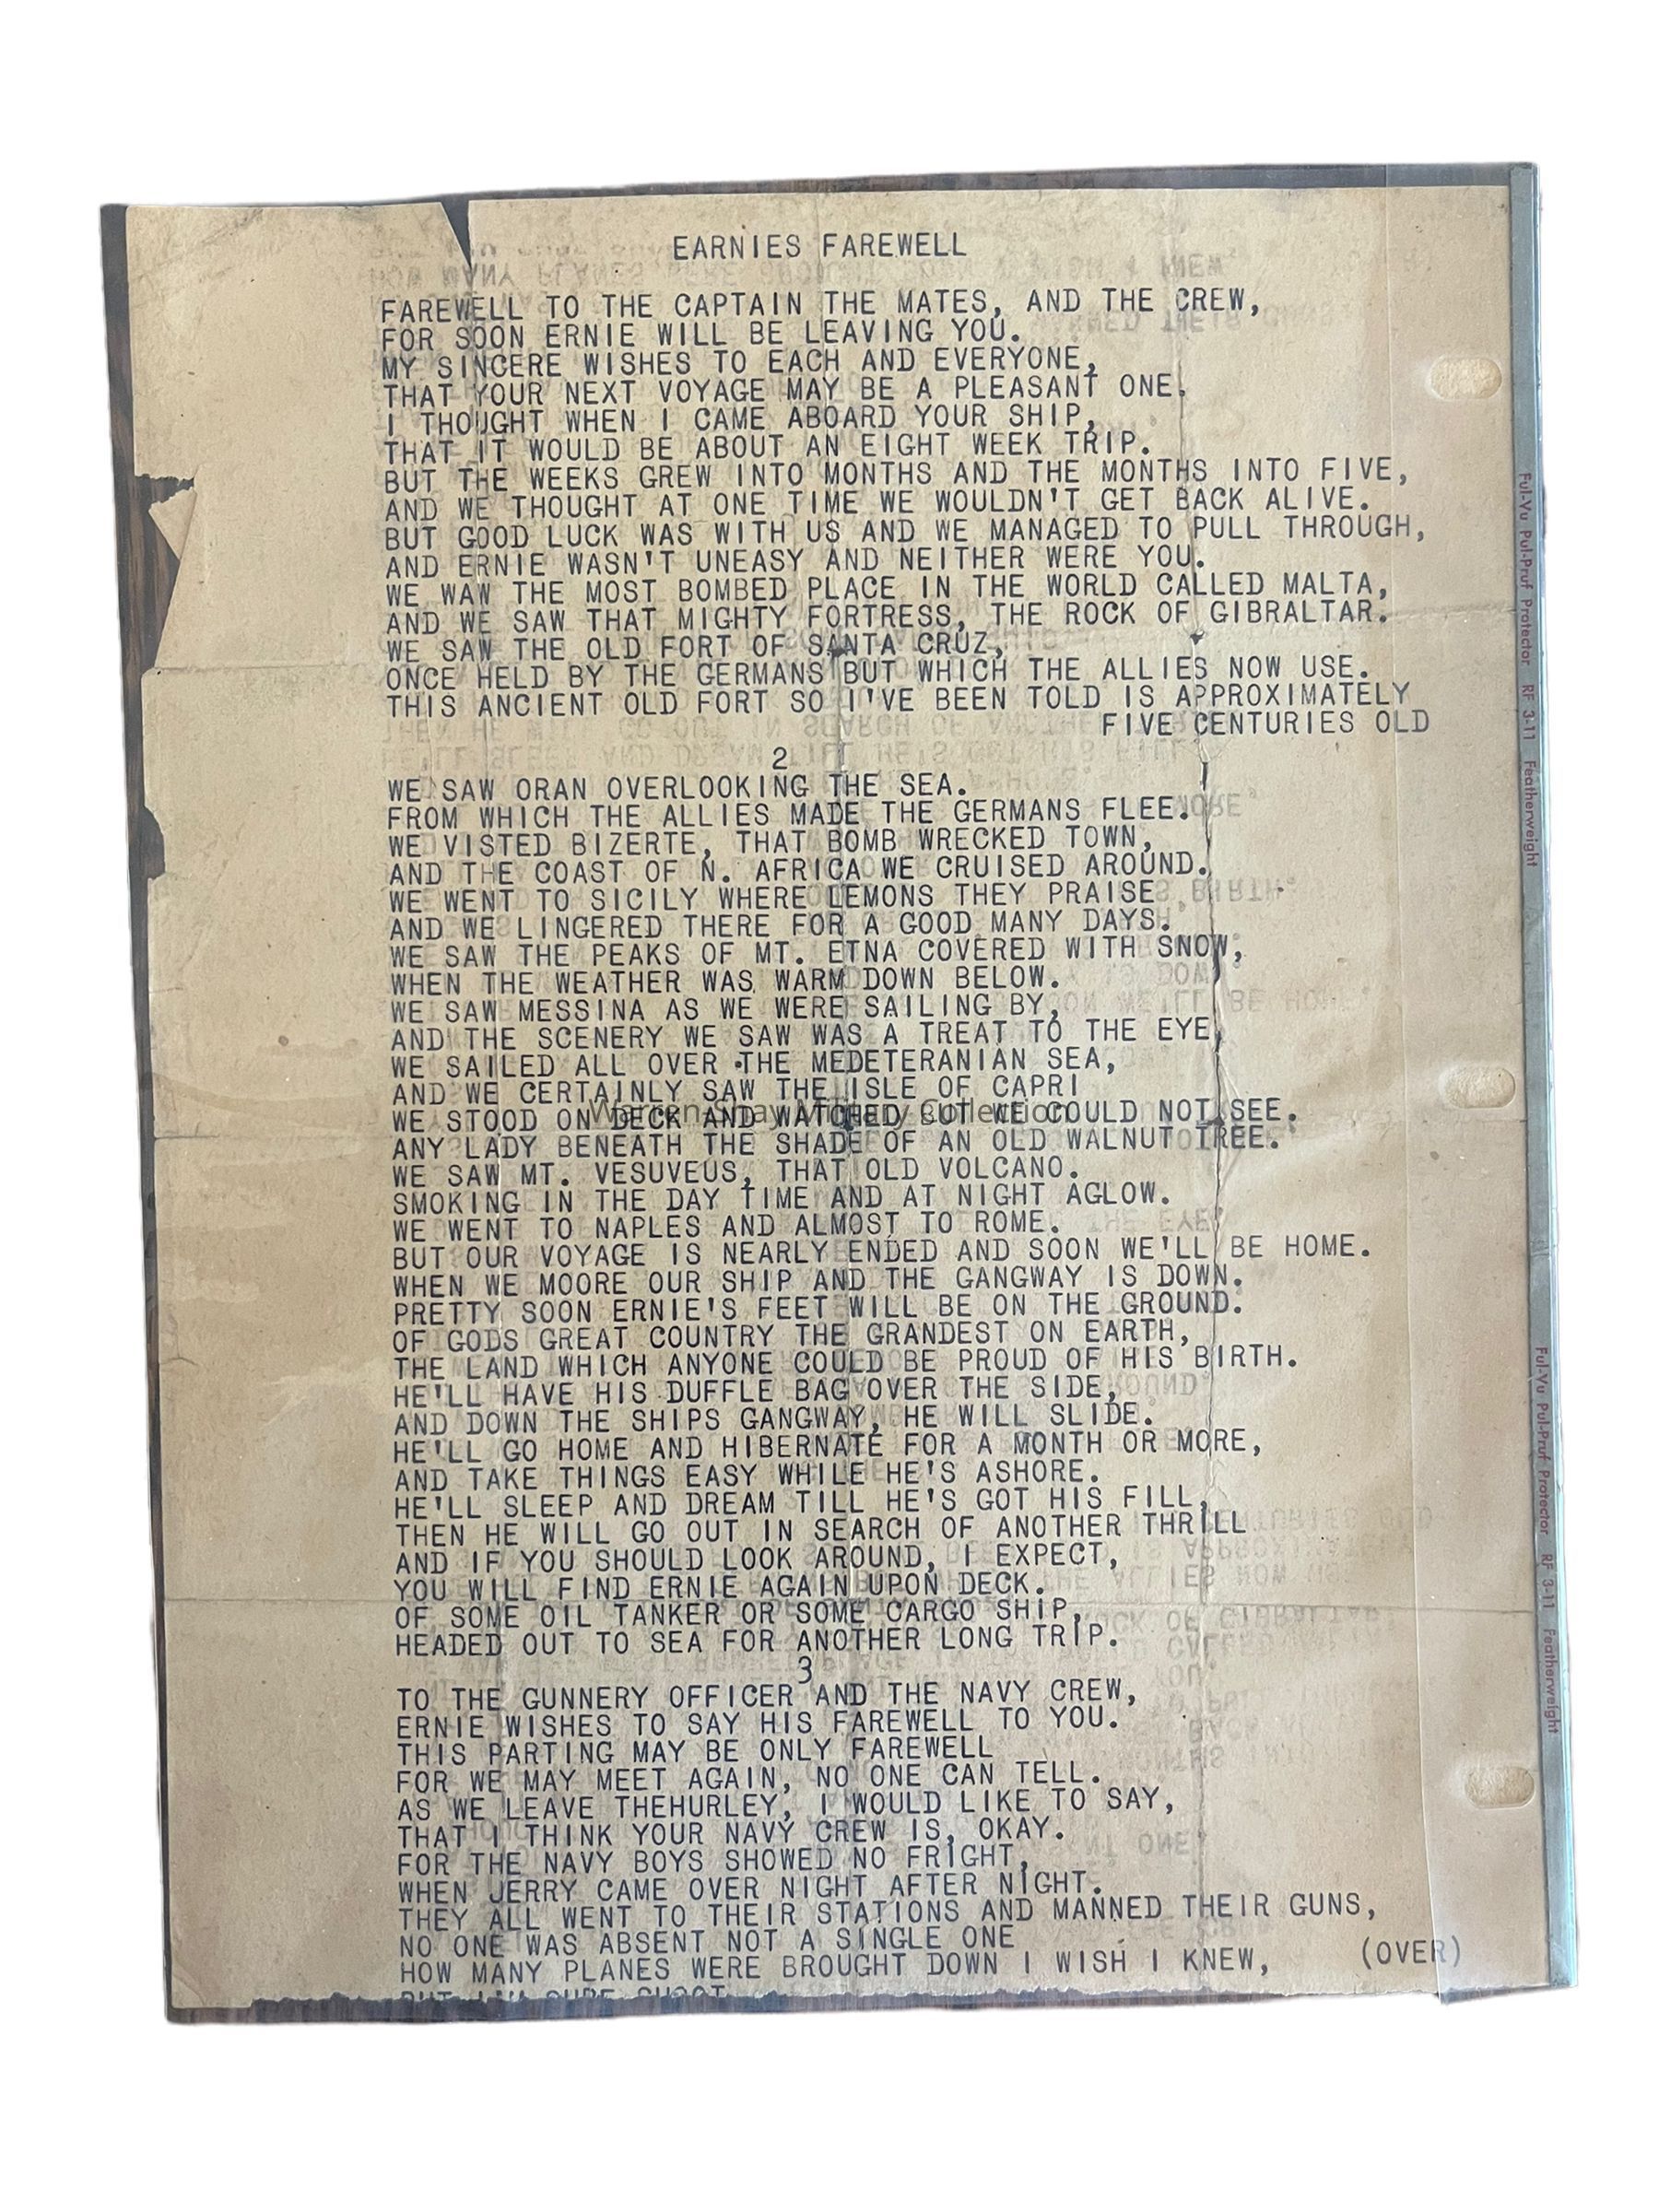 EARNIES FAREWELL
FAREWELL TO THE CAPTAIN THE MATES, AND THE CREW,
FOR SOON ERNIE WILL BE LEAVING YOU.
MY SINCERE WISHES TO EACH AND EVERYONE,
THAT YOUR NEXT VOYAGE MAY BE A PLEASANT ONE.
I THOUGHT WHEN I CAME ABOARD YOUR SHIP,
THAT IT WOULD BE ABOUT AN EIGHT WEEK TRIP.
BUT THE WEEKS GREW INTO MONTHS AND THE MONTHS INTO FIVE,
AND WE THOUGHT AT ONE TIME WE WOULDN'T GET BACK ALIVE.
BUT GOOD LUCK WAS WITH US AND WE MANAGED TO PULL THROUGH,
AND ERNIE WASN'T UNEASY AND NEITHER WERE YOU.
WE WAW THE MOST BOMBED PLACE IN THE WORLD CALLED MALTA,
AND WE SAW THAT MIGHTY FORTRESS, THE ROCK OF GIBRALTAR.
WE SAW THE OLD FORT OF SANTA CRUZ,
ONCE HELD BY THE GERMANS BUT WHICH THE ALLIES NOW USE.
THIS ANCIENT OLD FORT SO I'VE BEEN TOLD IS APPROXIMATELY
FIVE CENTURIES OLD
2
WE SAW ORAN OVERLOOKING THE SEA.
FROM WHICH THE ALLIES MADE THE GERMANS FLEE.
WE VISTED BIZERTE, THAT BOMB WRECKED TOWN,
AND THE COAST OF N. AFRICA WE CRUISED AROUND.
WE WENT TO SICILY WHERE LEMONS THEY PRAISE
AND WE LINGERED THERE FOR A GOOD MANY DAYS.
WE SAW THE PEAKS OF MT. ETNA COVERED WITH SNOW,
WHEN THE WEATHER WAS WARM DOWN BELOW.
WE SAW MESSINA AS WE WERE SAILING BY,
AND THE SCENERY WE SAW WAS A TREAT TO THE EYE,
WE SAILED ALL OVER THE MEDETERANIAN SEA,
AND WE CERTAINLY SAW THE ISLE OF CAPRI
WE STOOD ON DECK AND WATCHED BUT WE COULD NOT SEE.
Warren Shay Military Collection
ANY LADY BENEATH THE SHADE OF AN OLD WALNUT TREE.
WE SAW MT. VESUVEUS, THAT OLD VOLCANO.
SMOKING IN THE DAY TIME AND AT NIGHT AGLOW.
WE WENT TO NAPLES AND ALMOST TO ROME.
BUT OUR VOYAGE IS NEARLY ENDED AND SOON WE'LL BE HOME.
WHEN WE MOORE OUR SHIP AND THE GANGWAY IS DOWN.
PRETTY SOON ERNIE'S FEET WILL BE ON THE GROUND.
OF GODS GREAT COUNTRY THE GRANDEST ON EARTH,
THE LAND WHICH ANYONE COULD BE PROUD OF HIS BIRTH.
HE'LL HAVE HIS DUFFLE BAG OVER THE SIDE,
AND DOWN THE SHIPS GANGWAY, HE WILL SLIDE.
HE'LL GO HOME AND HIBERNATE FOR A MONTH OR MORE,
AND TAKE THINGS EASY WHILE HE'S ASHORE.
HE'LL SLEEP AND DREAM TILL HE'S GOT HIS FILL,
THEN HE WILL GO OUT IN SEARCH OF ANOTHER THRILL
AND IF YOU SHOULD LOOK AROUND, I EXPECT,
YOU WILL FIND ERNIE AGAIN UPON DECK.
OF SOME OIL TANKER OR SOME CARGO SHIP,
HEADED OUT TO SEA FOR ANOTHER LONG TRIP.
3
TO THE GUNNERY OFFICER AND THE NAVY CREW,
ERNIE WISHES TO SAY HIS FAREWELL TO YOU.
THIS PARTING MAY BE ONLY FAREWELL
FOR WE MAY MEET AGAIN, NO ONE CAN TELL.
AS WE LEAVE THEHURLEY, I WOULD LIKE TO SAY,
THAT I THINK YOUR NAVY CREW IS, OKAY.
FOR THE NAVY BOYS SHOWED NO FRIGHT,
WHEN JERRY CAME OVER NIGHT AFTER NIGHT.
THEY ALL WENT TO THEIR STATIONS AND MANNED THEIR GUNS,
NO ONE WAS ABSENT NOT A SINGLE ONE
HOW MANY PLANES WERE BROUGHT DOWN I WISH I KNEW, (OVER)
Ful-Vu Pul-Pruf Protector RF 3-11 Featherweight
Ful-Vu Pul-Pruf Protector RF 3-11 Featherweight